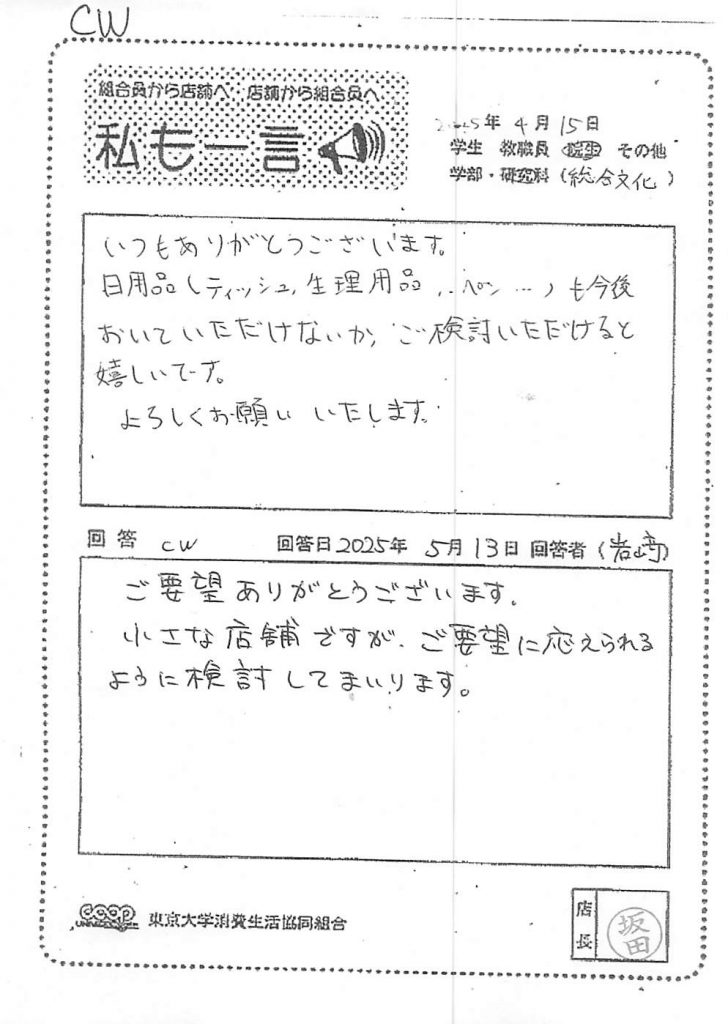 CW
組合員から店舗へ 店舗から組合員へ
私も一言
2025年 4月 15日
学生 教職員 院生 その他
学部・研究科 (総合文化)
いつもありがとうございます。
日用品(ティッシュ, 生理用品, .. ペン …)も今後
おいていただけないか, ご検討いただけると
嬉しいです。
よろしくお願いいたします。
回答 CW 回答日2025年 5月 13日 回答者(岩崎)
ご要望ありがとうございます。
小さな店舗ですが、ご要望に応えられる
ように検討してまいります。
coop 東京大学消費生活協同組合
店長 坂田